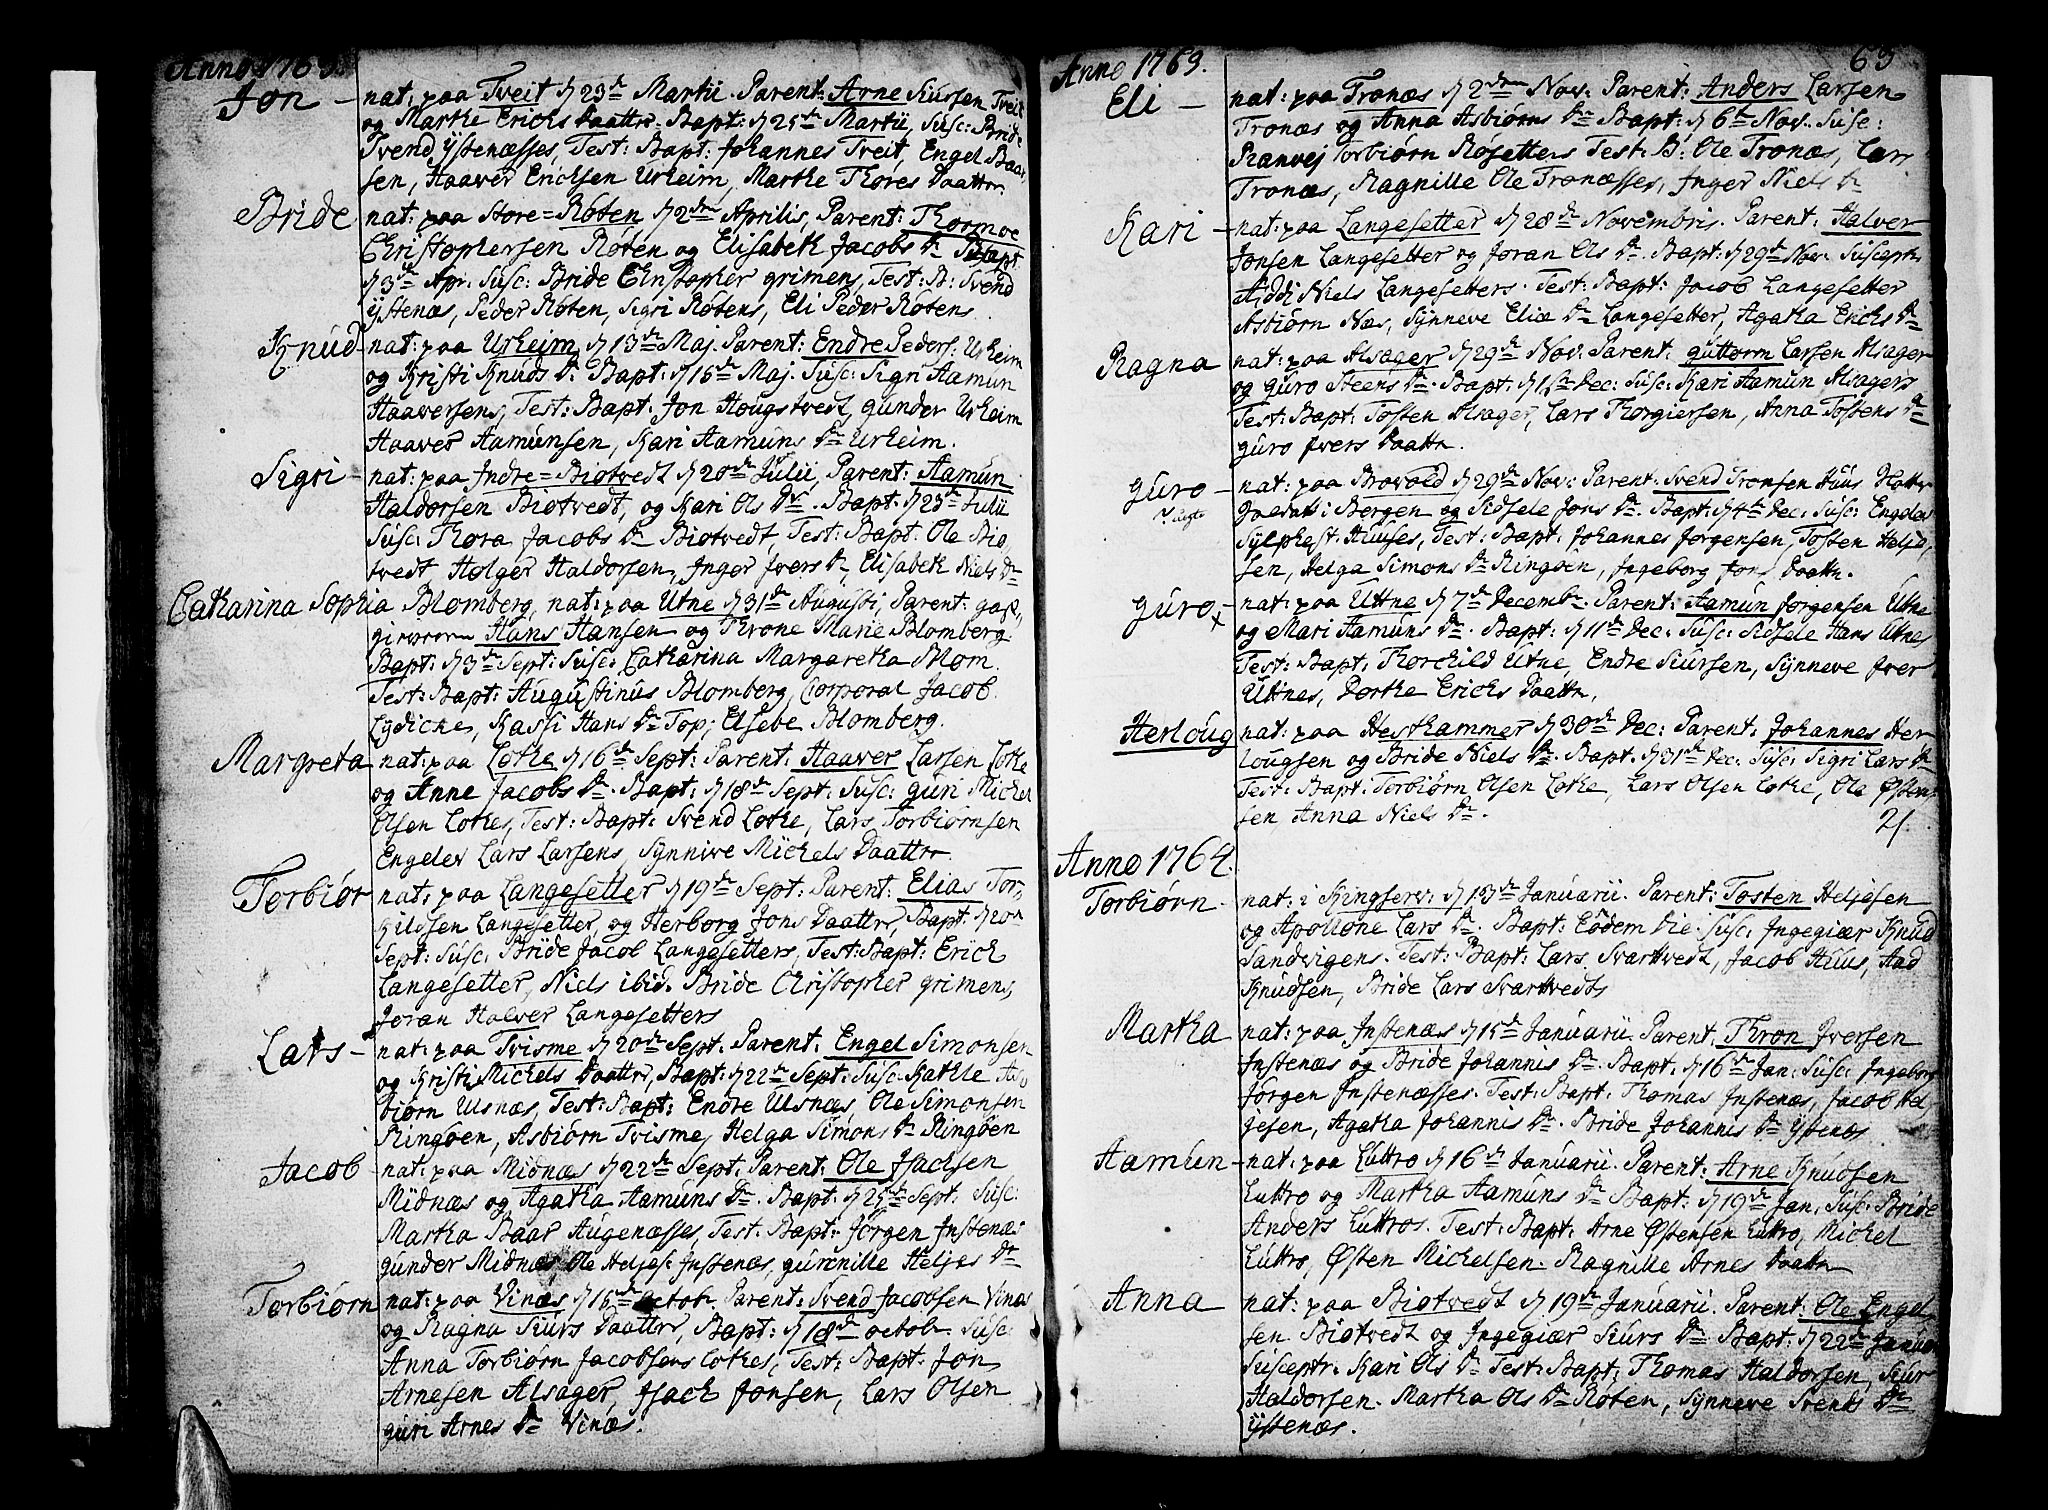 Anno 1763.
Jon – nat: paa Tveit d 23de Martii. Parent: Arne Siursen Tveit
og Marthe Erichs Daatter. Bapt: d 25de Martii, Susc: Bride
Svend Ystenæsses, Test: Bapt: Johannes Tveit, Engel Baar-
sen, Haaver Erichsen Urheim, Marthe Thores Daatter
Bride nat: paa Store=Røten d 2den Aprilis, Parent: Thormoe
Christophersen Røten og Elisabeth Jacobs Dr Bapt
d 3de Apr: Susc: Bride Christopher Grimens, Test: B: Svend
Ystenæs, Peder Røten, Sigri Røtens, Eli Peder Røtens
Knud nat: paa Urheim d 13de Maj. Parent: Endre Peders: Urheim
og Kristi Knuds Dr Bapt: d 15de Maj. Susc: Sigri Aamun
Haaversens, Test: Bapt: Jon Hougstvedt, Gunder Urheim
Haaver Aamunsen, Kari Aamuns Dr Urheim.
Sigri – nat: paa Indre=Biotvedt d 20de Julii, Parent: Aamun
Haldorsen Biotvedt, og Kari Ols Dr. Bapt: d 23de Julii
Susc: Thora Jacobs Dr Biotvedt, Test: Bapt: Ole Bio
tvedt Holger Haldorsen, Inger Ivers Dr, Elisabeth Niels Dr
Catharina Sophia Blomberg, nat: paa Utne d 31de Augusti, Parent:
Hans Hansen og Throne Marie Blomberg
Bapt: d 3de Sept: Susc: Catharina Margaretha Blom.
Test: Bapt: Augustinus Blomberg, Corporal Jacob
Lydiche, Kassi Hans Dr Top, Elsebe Blomberg.
Margreta nat: paa Lothe d 16de Sept: Parent: Haaver Larsen Lothe
og Anne Jacobs Dr. Bapt: d 18de Sept: Susc: Guri Michel
Olsen Lothes, Test: Bapt: Svend Lothe, Lars Torbiørnsen
Engelev Lars Larsens, Synnive Michels Daatter
Torbiør nat: paa Langesetter d 19de Sept: Parent: Elias Tor-
kildsen Langesetter, og Herborg Jons Daatter, Bapt: d 20de
Sept: Susc: Bride Jacob Langesetters, Test: Bapt: Erich
Langesetter, Niels ibid. Bride Christopher Grimens,
Joran Halver Langesetters
Lars – nat: paa Trisme d 20de Sept: Parent: Engel Simonsen
og Kristi Michels Daatter, Bapt: d 22de Sept: Susc: Kathle As-
biørn Ulsnæs, Test: Bapt: Endre Ulsnæs, Ole Simonsen
Ringøen, Asbiørn Trisme, Helga Simons Dr Ringøen
Jacob – nat: paa Midnæs d 22de Sept: Parent: Ole Isachsen
Midnæs og Agatha Aamuns Dr. Bapt: d 25de Sept: Susc:
Martha Baar Augenæsses, Test: Bapt: Jörgen Instenæs
Gunder Midnæs Ole Heljes: Instenæs, Gurinille Heljes Dr
Torbiørn nat: paa Vinæs d 16de Octob. Parent: Svend Jacobsen Vinæs
og Ragna Siurs Daatter, Bapt: d 18de Octob: Susc:
Anna Torbiørn Jacobsens Lothes, Test: Bapt: Jon
Arnesen Alsager, Isach Jonsen, Lars Olsen
Guri Arnes Dr Vinæs.
Anno 1763.
63
Eli – nat: paa Tronæs d 2den Nov. Parent: Anders Larsen
Tronæs og Anna Asbiørns Dr Bapt: d 6te Nov. Susc:
Ranvej Torbiørn Rosetters Test: B: Ole Tronæs, Lars
Tronæs, Ragnille Ole Tronæsses, Inger Niels Dr
Kari – nat: paa Langesetter d 28de Novembris. Parent: Halver
Jonsen Langesetter og Joran Ols Dr. Bapt: d 29de Nov: Suscept:
Aiddi Niels Langesetters. Test: Bapt: Jacob Langesetter
Asbiørn Næs, Synneve Eliæ Dr Langesetter, Agatha Erichs Dr
Ragna nat: paa Alsager d 29de Nov: Parent: Guttorm Larsen Alsager
og Guro Steens Dr. Bapt: d 1ste Dec: Susc: Kari Aamun Alsagers
Test: Bapt: Tosten Alsager, Lars Thorgiersen, Anna Tostens Dr
Guro Ivers Daatter.
Guro – nat: paa Brovold d 29de Nov: Parent: Svend Tronsen Huus
Soldat i Bergen og Sidsele Jons Dr. Bapt: d 4de Dec: Susc: Engelev
Sylphest: Huuses, Test: Bapt: Johannes Jorgensen, Tosten Heljes
sen, Helga Simons Dr Ringøen, Ingeborg Jons Daatter.
Guro nat: paa Uttne d 7de Decembr. Parent: Aamun Jorgensen Uttne
og Mari Aamuns Dr. Bapt: d 11de Dec: Susc: Sidsele Hans Utnes
Test: Bapt: Thorchild Utne, Endre Siursen, Synneve Iver
Uttnes, Dorthe Erichs Daatter,
Herloug nat: paa Hesthammer d 30de Dec: Parent: Johannes Her-
lougsen og Bride Niels Dr. Bapt: d 31de Dec: Susc: Sigri Lars Dr
Test: Bapt: Torbiørn Olsen Lothe, Lars Olsen Lothe, Ole Østen-
sen Anna Niels Dr.
21.
Anno 1764.
Torbiørn. nat: i Kingserv: d 13de Januarii. Parent: Tosten Heljesen
og Apollone Lars Dr. Bapt: Eodem Die. Susc: Ingegiær Knud
Sandvigens. Test: Bapt: Lars Svartvedt, Jacob Huus, Aad
Knudsen, Bride Lars Svartvedts
Martha nat: paa Instenæs d 15de Januarii. Parent: Thron Iversen
Instenæs og Bride Johannis Dr. Bapt: d 16de Jan: Susc: Ingeborg
Jörgen Instenæsses. Test: Bapt: Thomas Instenæs, Jacob Hel-
jesen, Agatha Johannis Dr. Bride Johannis Dr Ystenæs
Aamun – nat: paa Luttro d 16de Januarii. Parent: Arne Knudsen
Luttro og Martha Aamuns Dr Bapt: d 19de Jan, Susc: Bride
Anders Luttros. Test: Bapt: Arne Østensen Luttro, Michel
Luttro, Østen Michelsen. Ragnille Arnes Daatter
Anna nat: paa Biotvedt d 19de Januarii. Parent: Ole Engel-
sen Biotvedt og Ingegiær Siurs Dr Bapt: d 22de Januar
Susceptr: Kari Ols Dr Test: Bapt: Thomas Haldorsen, Siur
Haldorsen. Martha Ols Dr Røten, Synneve Svends Dr
Ystenæs.